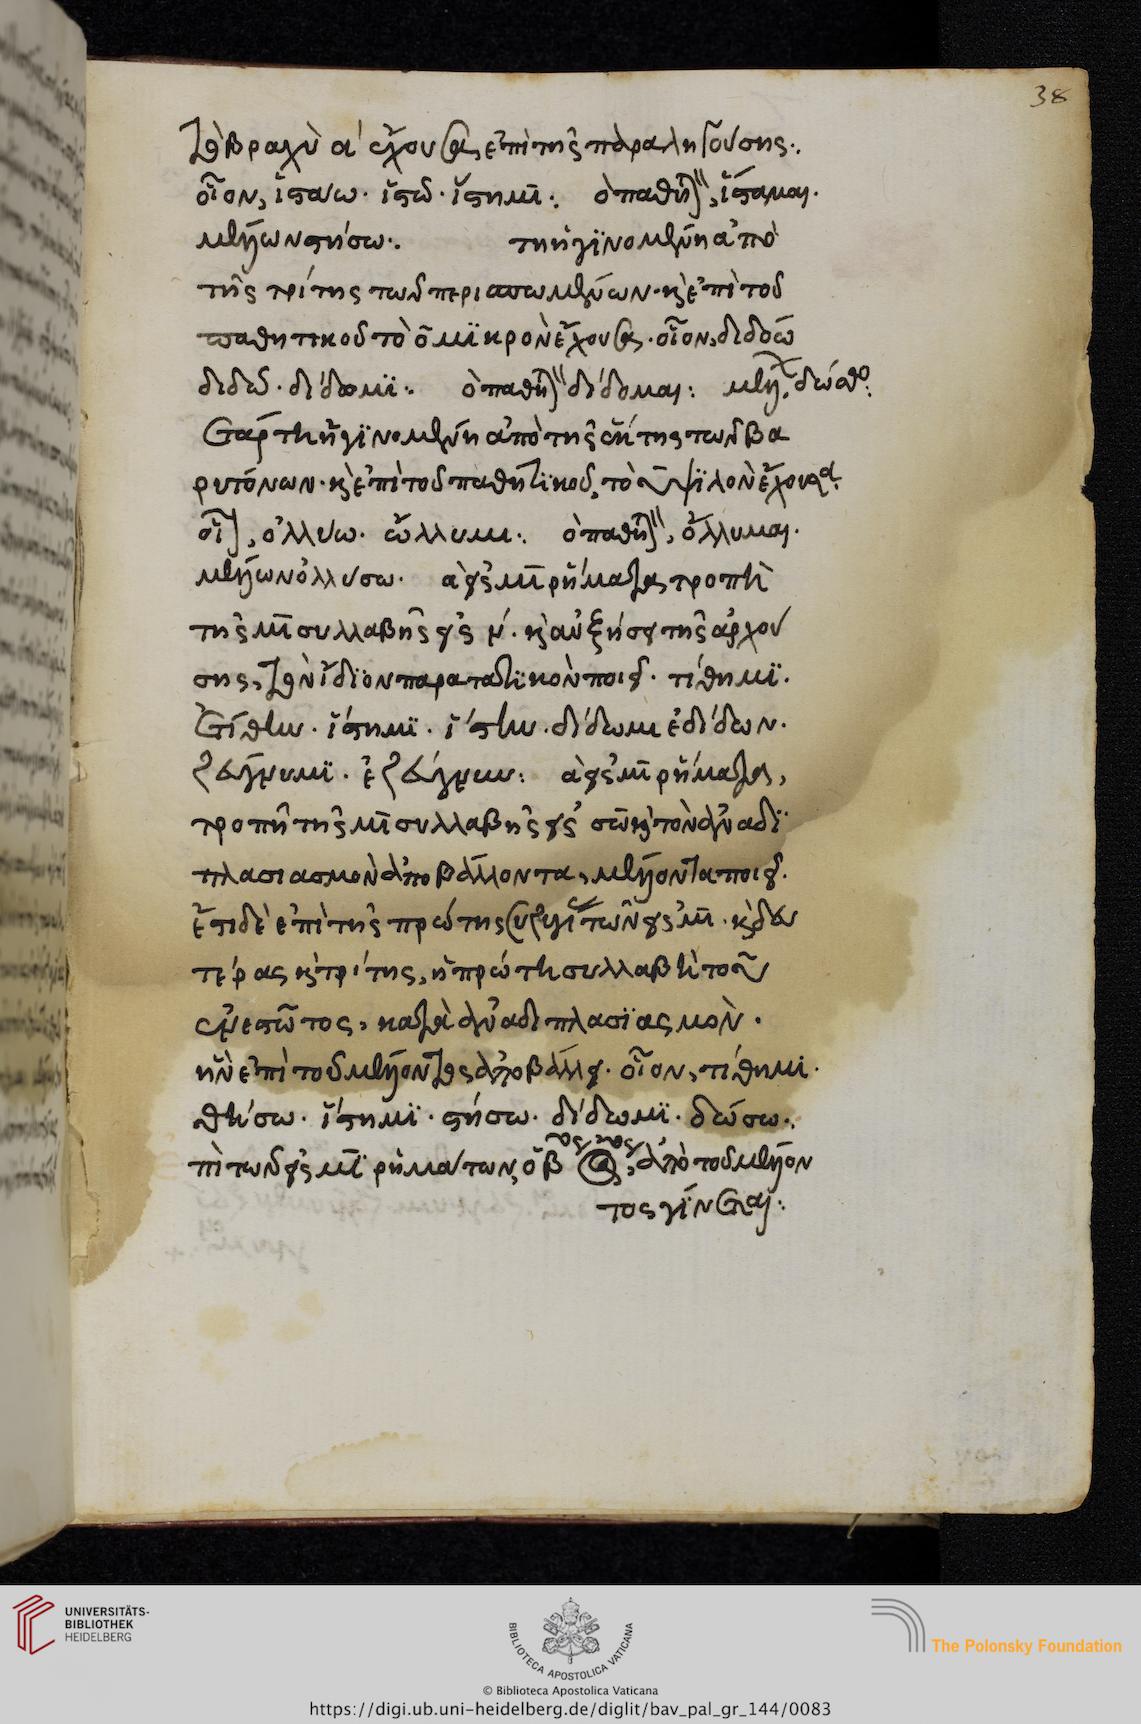 38
τὸ βραχὺ α ἔχουσα, ἐπὶ τῆς παραληγούσης·
οἷον, ἱσταω· ἱστῶ· ἵστημι: ὁ παθητ, ἵσταμαι·
μέλλων στήσω· τη ἡ γϊνομένη ἀπὸ
τῆς τρίτης των περισπωμένων· κὲ ἐπὶ τοῦ
παθητικοῦ τὸ ο μϊκρὸν ἔχουσα· οἷον, διδόω
διδῶ· δίδωμϊ: ὁ παθητ δίδομαι: μέλλ. δώσο:
Τετάρτη ἡ γϊνομένη ἀπὸ τῆς ἕκτης των βα
ρυτόνων· κὲ ἐπὶ τοῦ παθητϊκοῦ, τὸ υ ψϊλὸν ἔχουσα:
οἷον, ὀλλύω· ὤλλυμι: ὁ παθητ, ὄλλυμαι·
μέλλων ὀλλύσω· τὰ εἰς μι ρήματα, τροπῆ
τῆς μι συλλαβῆς εἰς ν· κὲ αὐξήσει τῆς ἀρχού
σης, τὸν ἴδϊον παρατατϊκὸν ποιεῖ· τίθημϊ·
ἐτίθην· ἵστημϊ· ἵστην· δίδωμι ἐδίδων·
ζεύγνυμϊ· ἐζεύγνυν: τὰ εἰς μι ρήματα,
τροπῆ τῆς μι συλλαβῆς εἰς σω κὲ τὸν ἀναδϊ
πλασιασμὸν ἀποβάλλοντα, μέλλοντα ποιεῖ·
ἔτι δὲ ἐπὶ τῆς πρώτης συζυγί τῶν εἰς μι· κὲ δευ
τέρας κὲ τρίτης, ἡ πρώτη συλλαβὴ τοῦ
ἐνεστῶτος, κατὰ ἀναδιπλασϊασμὸν·
ἣν ἐπὶ τοῦ μέλλοντος ἀποβάλλει· οἷον, τίθημι·
θήσω· ἵστημϊ· στήσω· δίδωμϊ· δώσω·
πὶ των εἰς μι ρημάτων, ὁ β ἀόριστος, ἀπὸ τοῦ μέλλον
τος γίνεται:
UNIVERSITÄTS-
BIBLIOTHEK
HEIDELBERG
BIBLIOTECA APOSTOLICA VATICANA
The Polonsky Foundation
© Biblioteca Apostolica Vaticana
https://digi.ub.uni-heidelberg.de/diglit/bav_pal_gr_144/0083